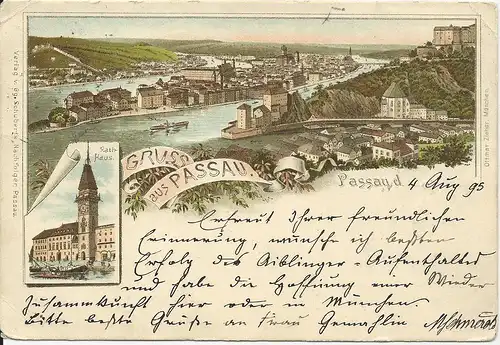 Rath-
Haus.
GRUSS
aus PASSAU.
Passau, d. 4 Aug 95
Erfreut Ihrer freundlichen
Erinnerung, wünsche ich besten
Erfolg des Aiblinger-Aufenthaltes
und habe die Hoffnung einer Wieder
Zusammkunft hier oder in München.
Bitte beste Grüße an Frau Gemahlin
Ottmar Zieher, München.
Verlag v.
Passau.